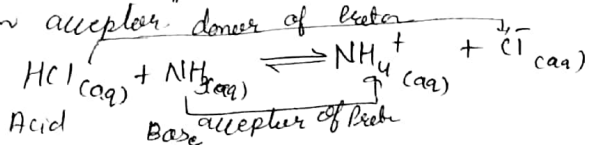 acceptor donor of Proton
HCl(aq) + NH3(aq) ⇌ NH4+ (aq) + Cl- (aq)
Acid Base acceptor of Proto